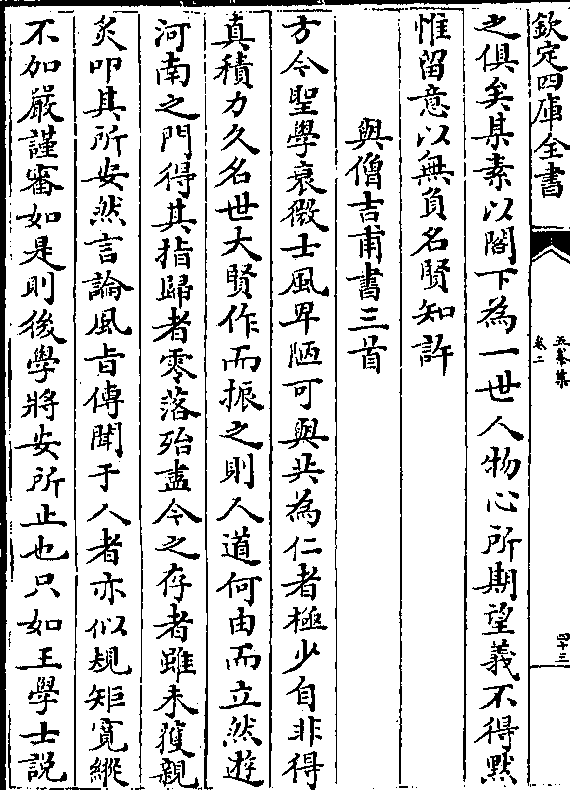 欽定四庫全書
五峯集
卷二
四十三
之俱矣某素以閣下為一世人物心所期望義不得黙
惟留意以無負名賢知許
與僧吉甫書三首
方今聖學衰微士風卑陋可與共為仁者極少自非得
真積力久名世大賢作而振之則人道何由而立然遊
河南之門得其指歸者零落殆盡今之存者雖未獲親
炙叩其所安然言論風旨傳聞于人者亦似規矩寛縱
不加嚴謹審如是則後學將安所止也只如王學士説